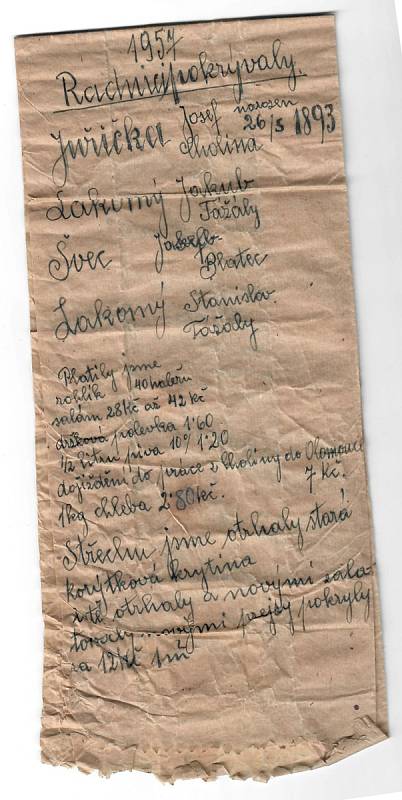 1957
Radnici pokrývaly.
Juřička Josef narozen
Cholina 26/5 1893
Lakomý Jakub
Tážaly
Švec Josef
Blatec
Lakomý Stanislav
Tážaly
Platily jsme
rohlík 40 haléřu
salám 28 Kč až 42 Kč
držková polevka 1.60
1/2 litru piva 10° 1.20
dojiždění do práce z Choliny do Olomouce
7 Kč.
1kg chleba 2.80 kč.
Střechu jsme otrhaly stará
korýtková krytina
latě otrhaly a novými zala-
tovaly pokryly
za 12 Kč 1m²